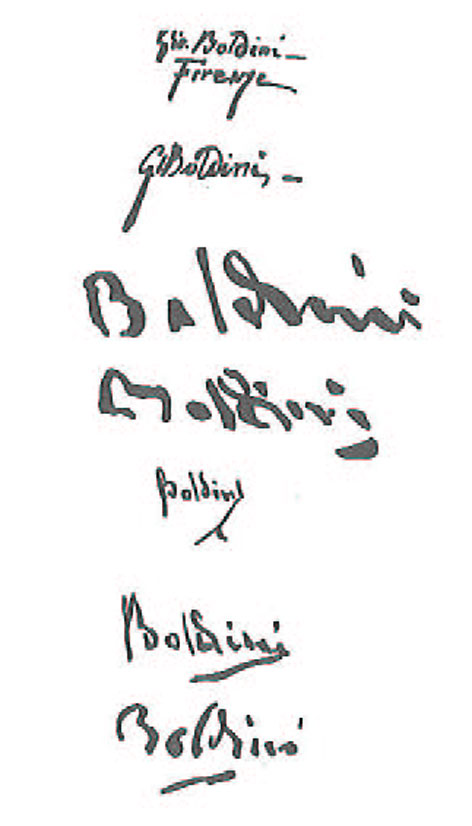 Gio. Boldini
Firenze
G Boldini
Boldini
Boldini
Boldini
Boldini
Boldini